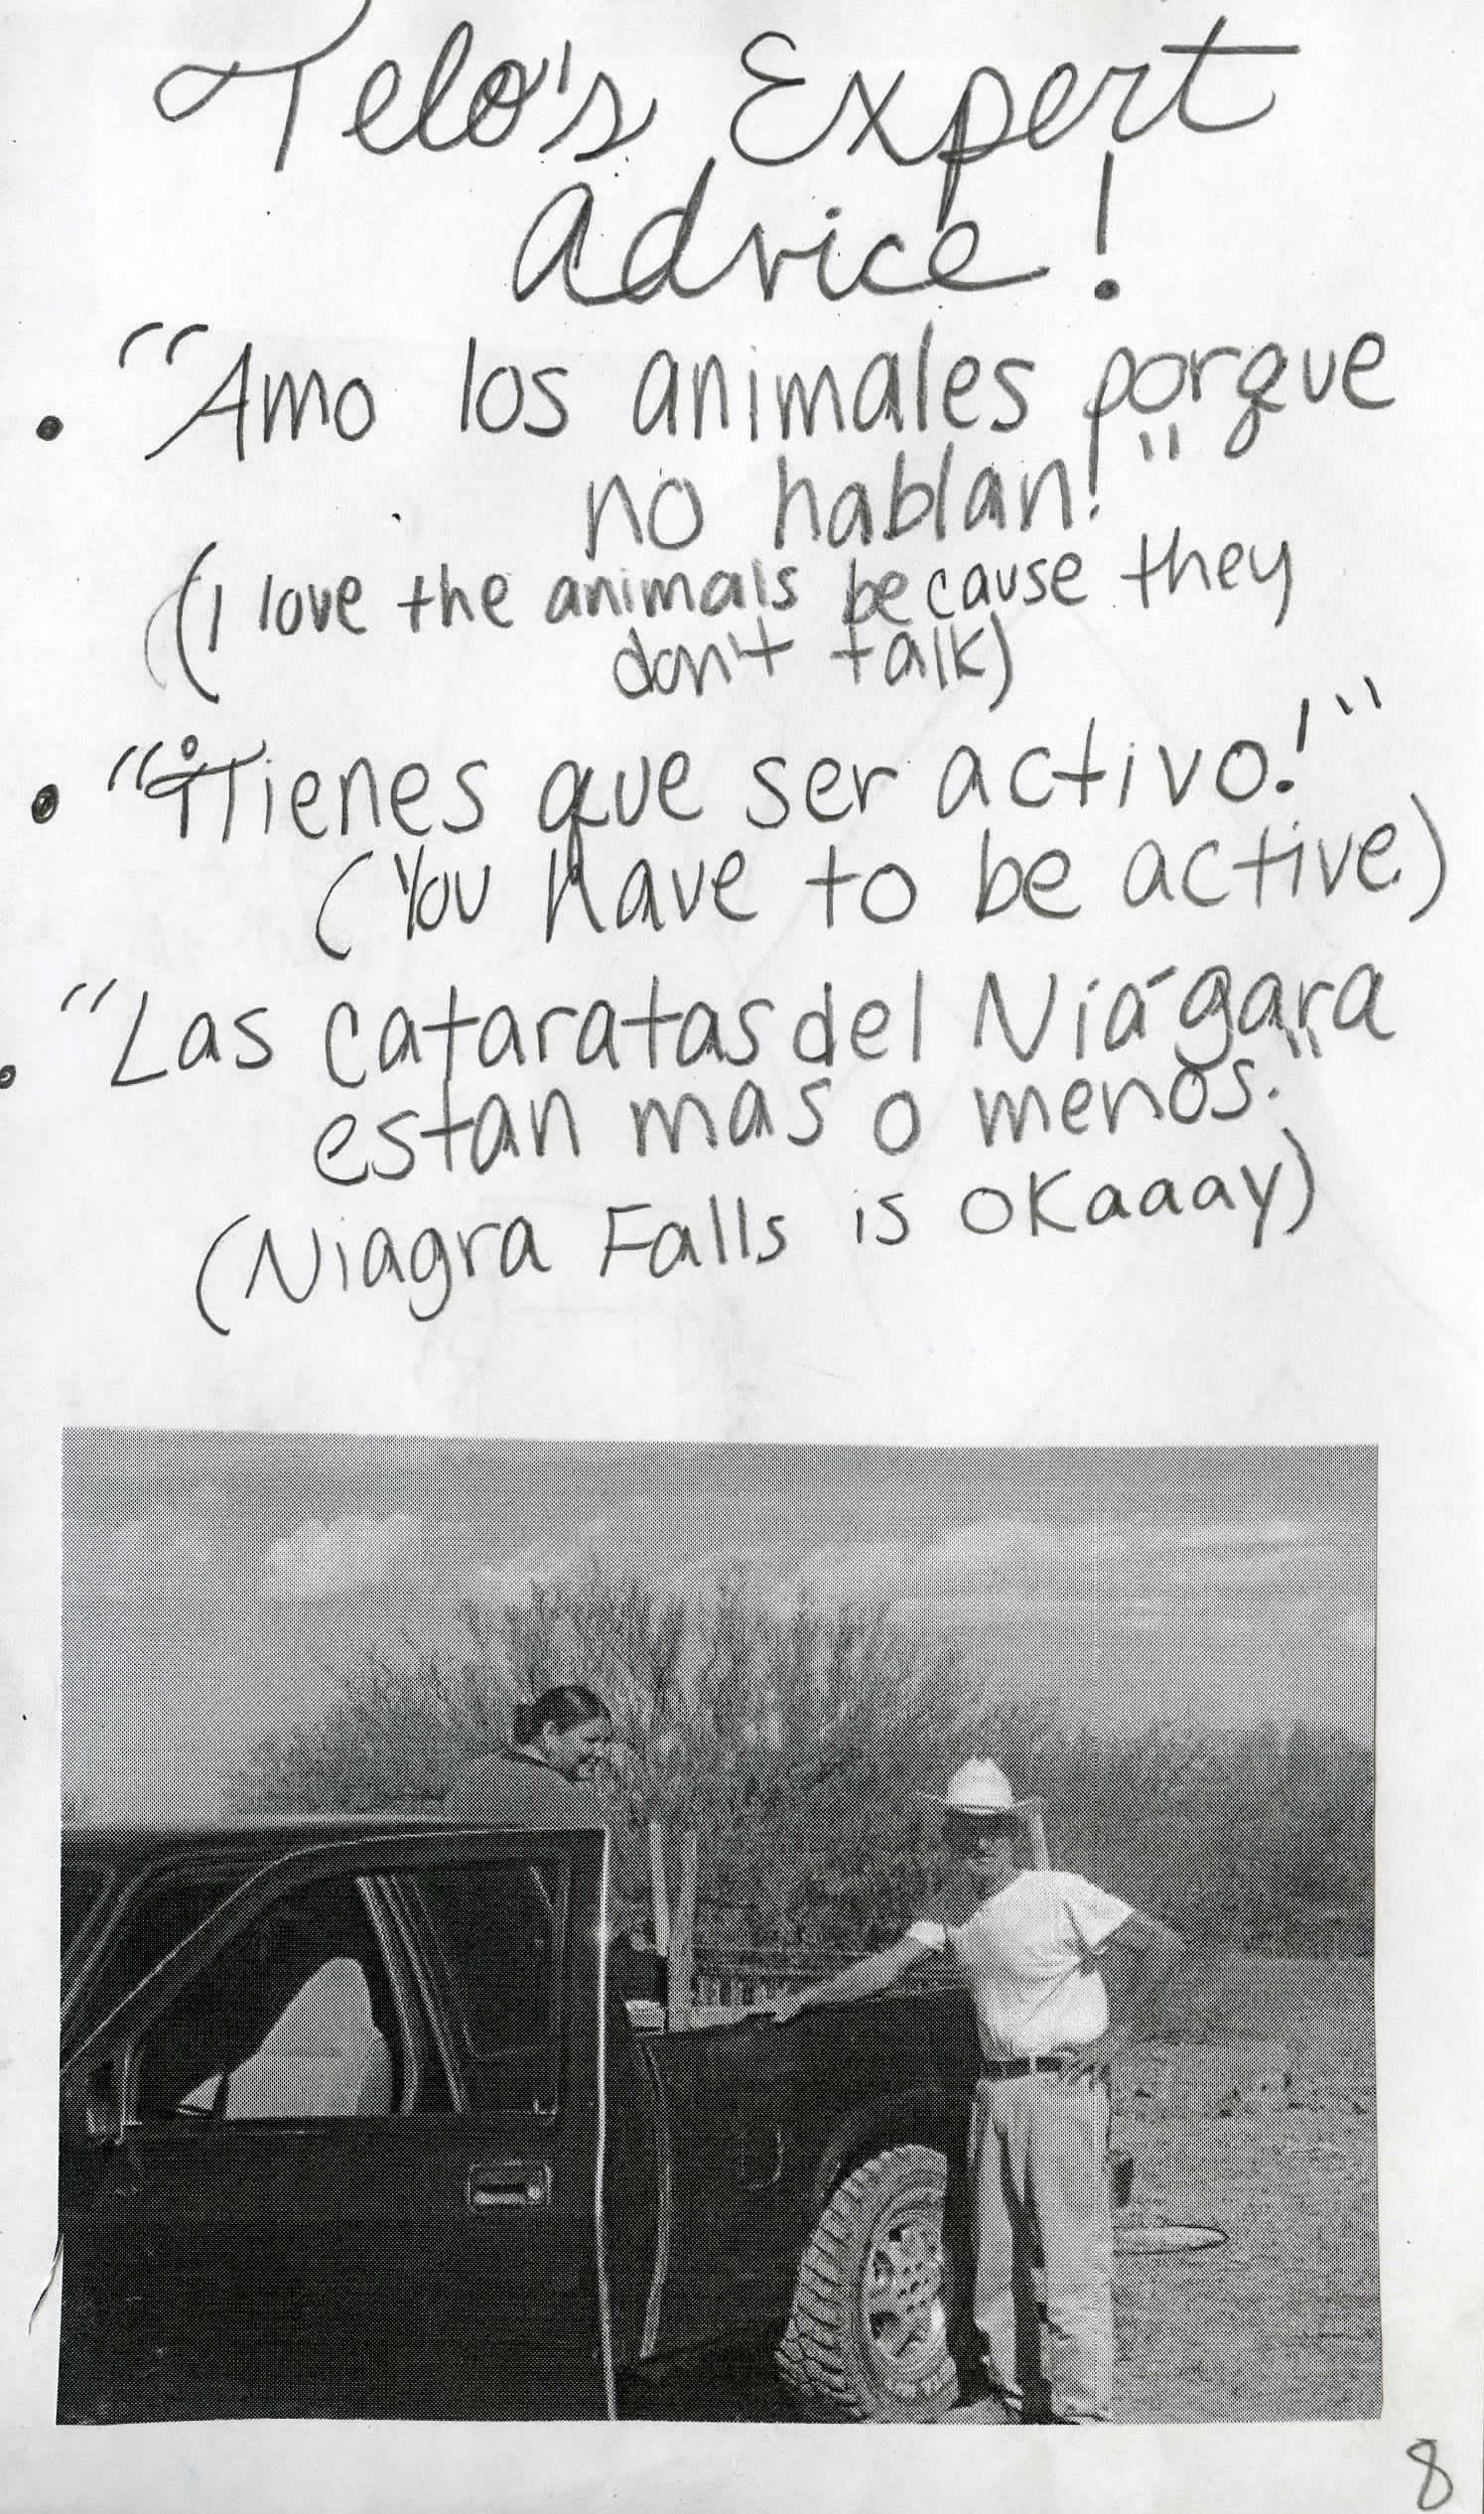 Telo's Expert
Advice!
• "Amo los animales porque
no hablan!"
(I love the animals because they
don't talk)
• "¡Tienes que ser activo!"
(You have to be active)
• "Las cataratas del Niágara
estan mas o menos."
(Niagra Falls is okaaay)
8